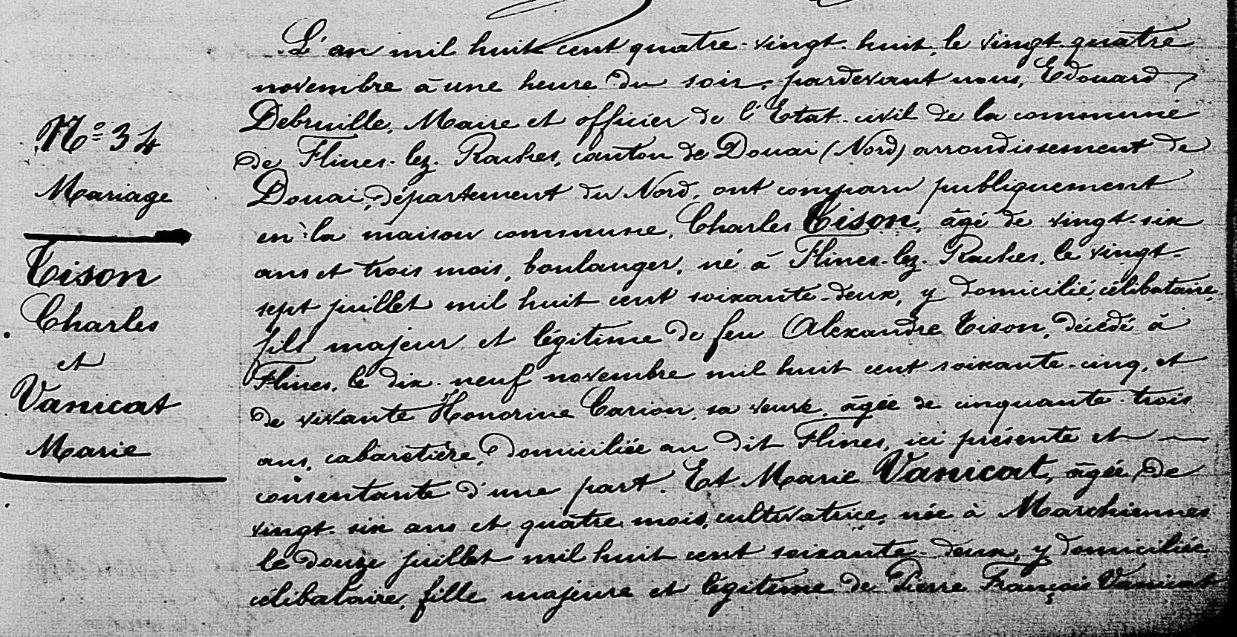 N° 34
Mariage
Tison
Charles
et
Vanicat
Marie
L'an mil huit cent quatre-vingt-huit, le vingt-quatre
novembre à une heure du soir, pardevant nous, Edouard
Debruille, Maire et officier de l'Etat-civil de la commune
de Flines-lez-Raches, canton de Douai (Nord) arrondissement de
Douai, département du Nord, ont comparu publiquement
en la maison commune, Charles Tison, âgé de vingt-six
ans et trois mois, boulanger, né à Flines-lez-Raches, le vingt-
sept juillet mil huit cent soixante-deux, y domicilié, célibataire,
fils majeur et légitime de feu Alexandre Tison, décédé à
Flines, le dix-neuf novembre mil huit cent soixante-cinq, et
de vivante Honorine Carion, sa veuve, âgée de cinquante-trois
ans, cabaretière, domiciliée au dit Flines, ici présente et
consentante d'une part. Et Marie Vanicat, âgée de
vingt-six ans et quatre mois, cultivatrice, née à Marchiennes
le douze juillet mil huit cent soixante-deux, y domiciliée
célibataire, fille majeure et légitime de Pierre François Vanicat